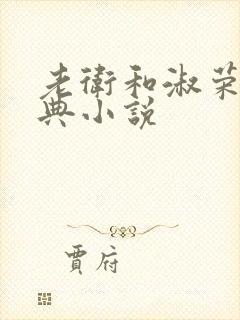 老衛和淑荣
典小說
賈府